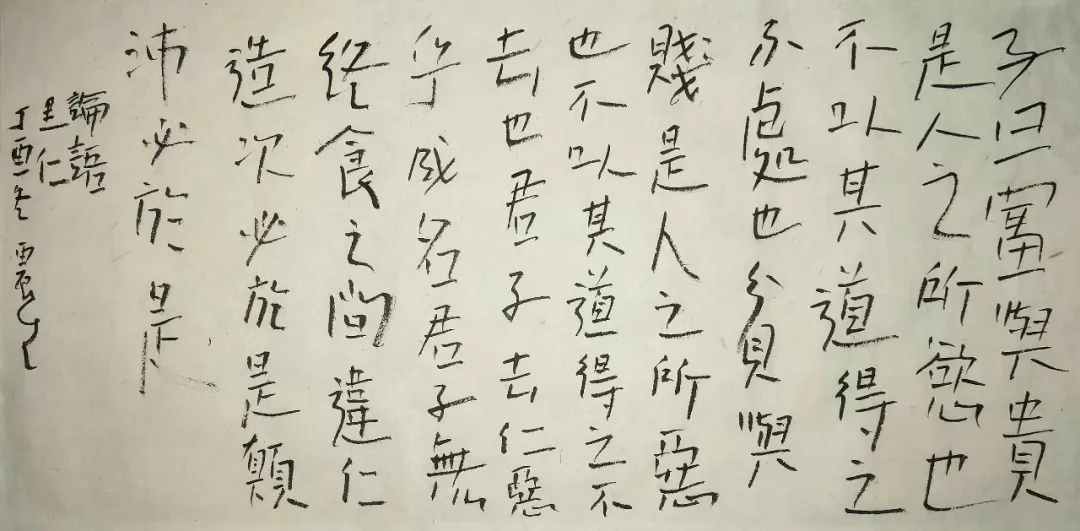 子曰富與貴
是人之所慾也
不以其道得之
不處也貧與
賤是人之所惡
也不以其道得之不
去也君子去仁惡
乎成名君子無
終食之間違仁
造次必於是顛
沛必於是
論語
里仁
丁酉冬震生